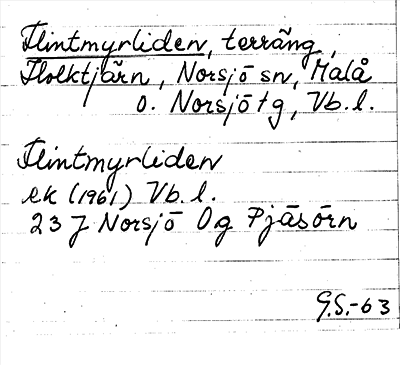 Flintmyrliden, terräng,
Flolktjärn, Norsjö sn, Malå
o. Norsjö tg, Vb.l.
Flintmyrliden
ek (1961) Vb.l.
23 J Norsjö 0g Pjäsörn
G.S.-63